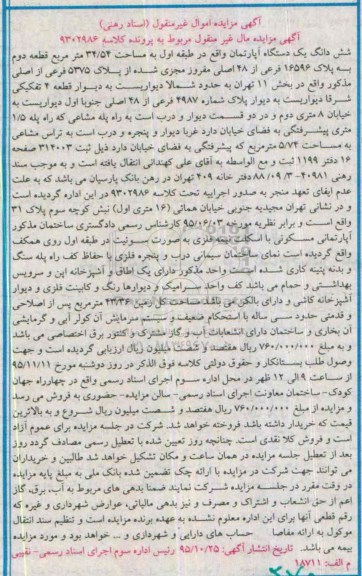 آگهی مزایده اموال غیرمنقول (اسناد رهنی)
آگهی مزایده مال غیر منقول مربوط به پرونده کلاسه ۹۳۰۲۹۸۶
شش دانگ یک دستگاه آپارتمان واقع در طبقه اول به مساحت ۳۴/۵۲ متر مربع قطعه دوم
به پلاک ۱۶۵۹۶ فرعی از ۴۸ اصلی مفروز مجزی شده از پلاک ۵۳۷۵ فرعی از اصلی
مذکور واقع در بخش ۱۱ تهران به حدود شمالا دیواریست به دیوار قطعه ۴ تفکیکی
شرقا دیواریست به دیوار پلاک شماره ۴۹۸۷ فرعی از ۴۸ اصلی جنوبا اول دیواریست به
خیابان ۸ متری دوم و در دو قسمت دیوار و درب است به راه پله مشاعی که راه پله ۱/۵
متری پیشرفتگی به فضای خیابان دارد غربا دیوار و پنجره و درب است به تراس مشاعی
به مساحت ۵/۷۴ مترمربع که پیشرفتگی به فضای خیابان دارد ذیل ثبت ۳۱۲۰۰۳ صفحه
۱۶ دفتر ۱۱۹۹ ثبت و مع الواسطه به آقای علی کهندانی انتقال یافته است و به موجب سند
رهنی ۴۰۹۸۱- ۸۸/۰۹/۳ دفتر خانه ۴۰۹ تهران در رهن بانک پارسیان می باشد که به علت
عدم ایفای تعهد منجر به صدور اجراییه تحت کلاسه ۹۳۰۲۹۸۶ در این اداره گردیده است
و در نشانی تهران مجیدیه جنوبی خیابان همائی (۱۶ متری اول) نبش کوچه سوم پلاک ۳۱
واقع است و برابر نظریه مورخه کارشناس رسمی دادگستری ساختمان مذکور
آپارتمانی مسکونی با اسکلت نیمه فلزی به صورت سوئیت در طبقه اول روی همکف
واقع گردیده است نمای ساختمان سیمانی درب و پنجره فلزی با حفاظ کف راه پله سنگ
و بدنه پتینه کاری شده است واحد مذکور دارای یک اطاق و آشپزخانه اپن و سرویس
بهداشتی و حمام می باشد کف واحد سرامیک و دیوارها رنگ و کابینت فلزی و دیوار
آشپزخانه کاشی و دارای بالکن می باشد مساحت کل زمین مترمربع پس از اصلاحی
و قدمتی حدود سی ساله با استحکام ضعیف و سیستم سرمایش آن کولر آبی و گرمایشی
آن بخاری و ساختمان دارای انشعابات آب و گاز مشترک و کنتور برق اختصاصی می باشد
و به مبلغ ۷۶۰/۰۰۰/۰۰۰ ریال هفتصد و شصت میلیون ریال ارزیابی گردیده است و جهت
وصول طلب بستانکار و حقوق دولتی کلاسه فوق الذکر در روز دوشنبه مورخ ۹۵/۱۱/۱۱
از ساعت ۹ الی ۱۲ ظهر در محل اداره سوم اجرای اسناد رسمی واقع در چهارراه جهان
کودک- ساختمان معاونت اجرای اسناد رسمی- سالن مزایده- حضوری به فروش می رسد
و مزایده از مبلغ ۷۶۰/۰۰۰/۰۰۰ ریال هفتصد و شصت میلیون ریال شروع و به بالاترین
قیمت که خریدار داشته باشد فروخته خواهد شد. شرکت در جلسه مزایده برای عموم آزاد
است و فروش کلا نقدی است. چنانچه روز تعیین شده با تعطیل رسمی مصادف گردد روز
بعد از تعطیل جلسه مزایده در همان ساعت و مکان تشکیل خواهد شد طالبین و خریداران
می توانند جهت شرکت در مزایده با ارائه چک تضمین شده بانک ملی به مبلغ پایه مزایده
در وقت مقرر در جلسه مزایده شرکت نمایند ضمنا بدهی های مربوط به آب، برق، گاز
اعم از حق انشعاب و اشتراک و مصرف و نیز بدهی مالیاتی، عوارض شهرداری و غیره که
رقم قطعی آنها برای این اداره معلوم نشده به عهده برنده مزایده است و تنظیم سند انتقال
موکول به ارائه مفاصا حساب های دارایی و شهرداری و ... خواهد بود و مورد مزایده
بیمه می باشد. تاریخ انتشار آگهی: ۹۵/۱۰/۲۵ رئیس اداره سوم اجرای اسناد رسمی- نقیبی
م الف: ۱۸۷۱۱